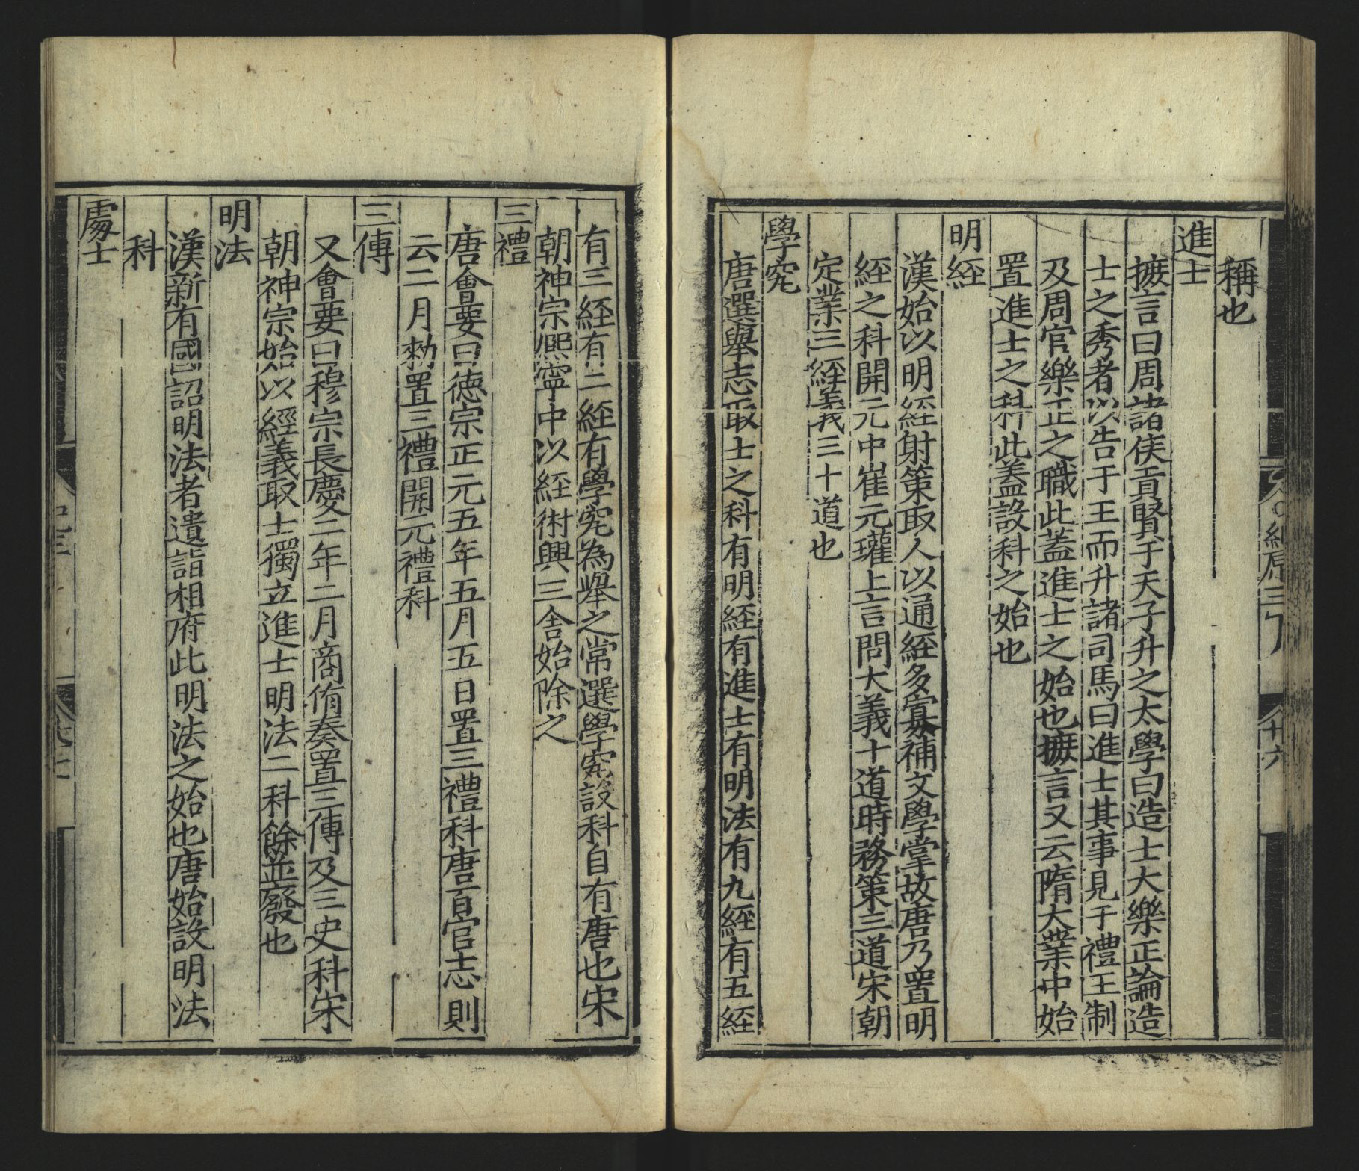 稱也
進士
摭言曰周諸侯貢賢于天子升之太學曰造士大樂正論造
士之秀者以告于王而升諸司馬曰進士其事見于禮王制
及周官樂正之職此蓋進士之始也摭言又云隋大業中始
置進士之科此蓋設科之始也
明經
漢始以明經射策取人以通經多寡補文學掌故唐乃置明
經之科開元中崔元瓘上言問大義十道時務策三道宋朝
定業三經義三十道也
學究
唐選舉志取士之科有明經有進士有明法有九經有五經
有三經有二經有學究為舉之常選學究設科自有唐也宋
朝神宗熙寧中以經術興三舍始除之
三禮
唐會要曰德宗正元五年五月五日置三禮科唐百官志則
云二月勑置三禮開元禮科
三傳
又會要曰穆宗長慶二年二月商侑奏置三傳及三史科宋
朝神宗始以經義取士獨立進士明法二科餘並廢也
明法
漢新有國詔明法者遣詣相府此明法之始也唐始設明法
科
處士